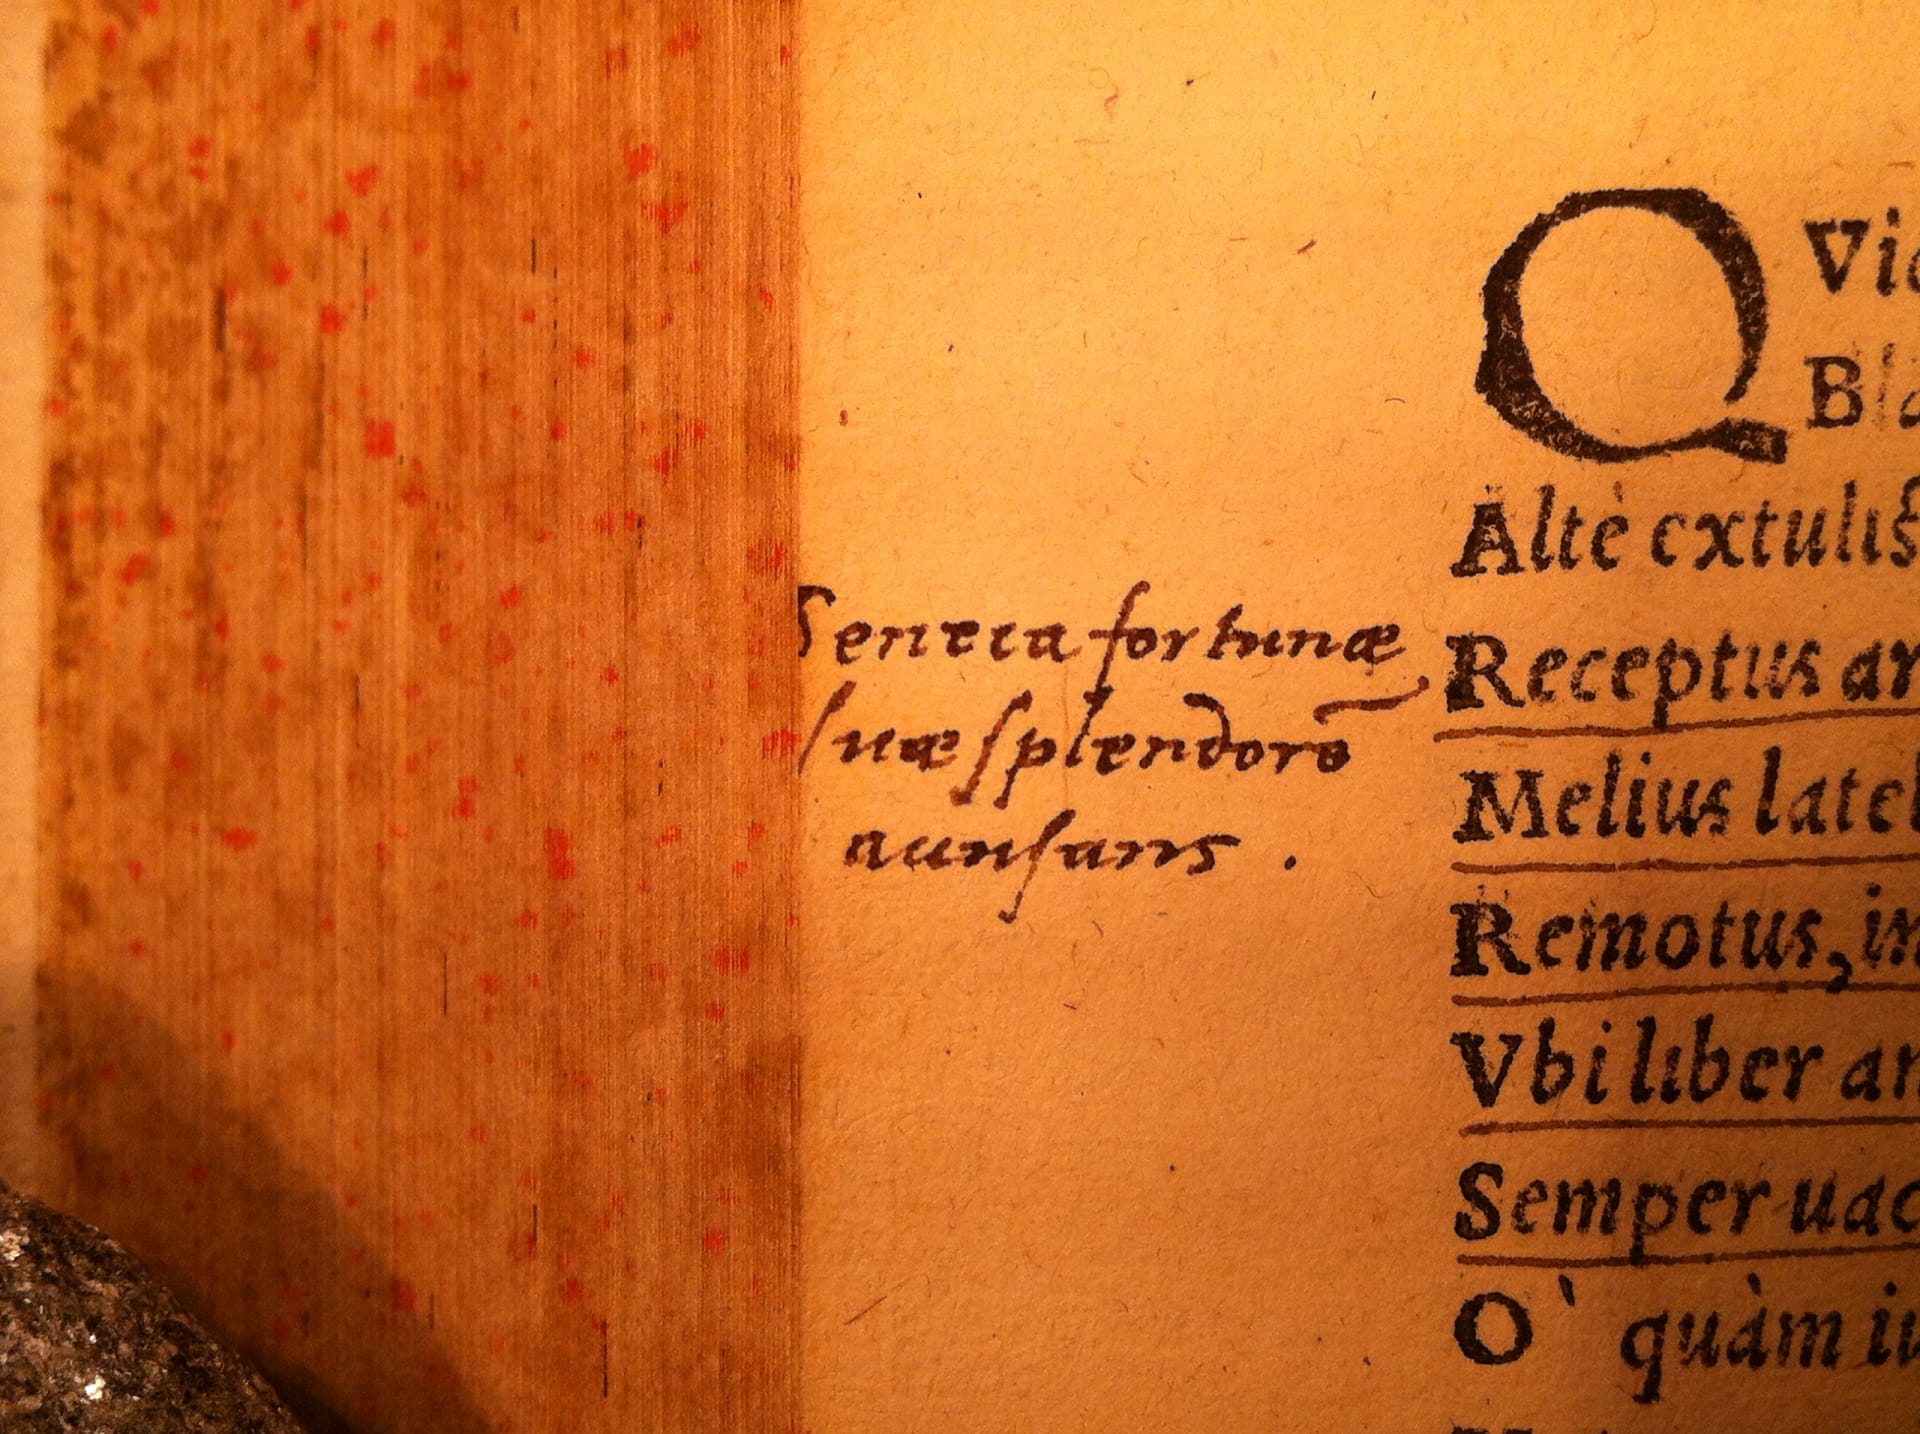 Seneca fortunæ
suæ splendorē
auersans .
QVi
Bla
Altè extulis
Receptus
Melius lateb
Remotus, in
Vbi liber an
Semper uac
O` quàm iu